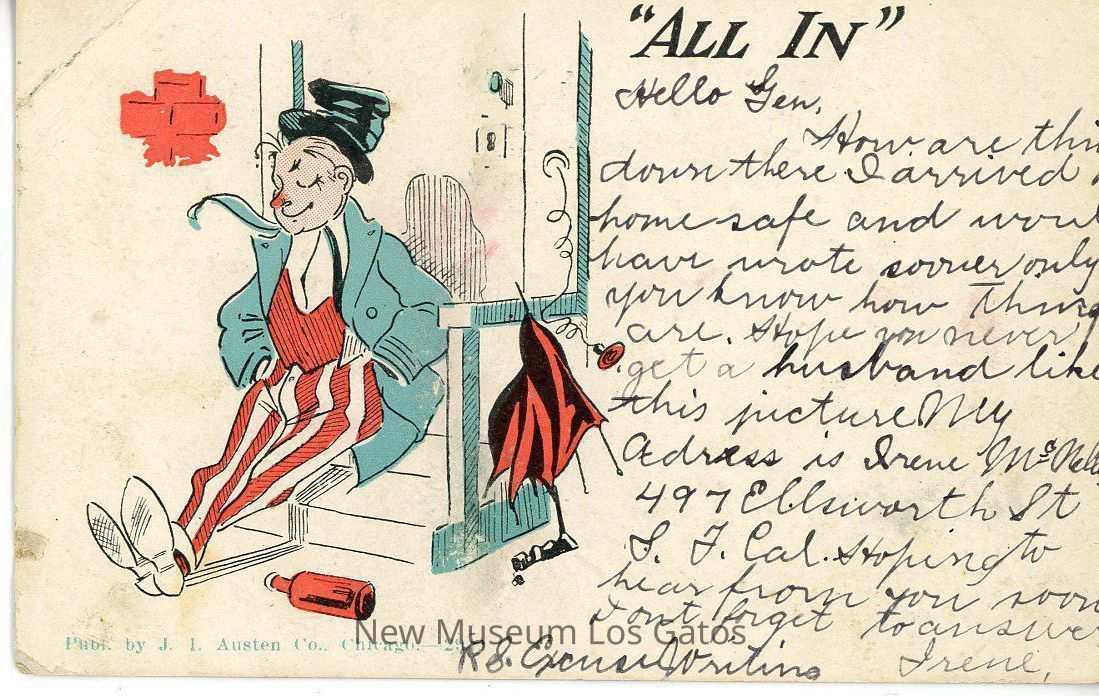 "ALL IN"
Hello Gen,
How are thin
down there I arrived
home safe and woul
have wrote sooner only
you know how Thing
are. Hope you never
get a husband like
this picture My
Adress is Irene
497 Ellsworth St
S. F. Cal. Hoping to
hear from you soon
dont forget to answe
Irene,
P.S. Excuse Writing
Publ. by J. I. Austen Co., Chicago.—2
New Museum Los Gatos